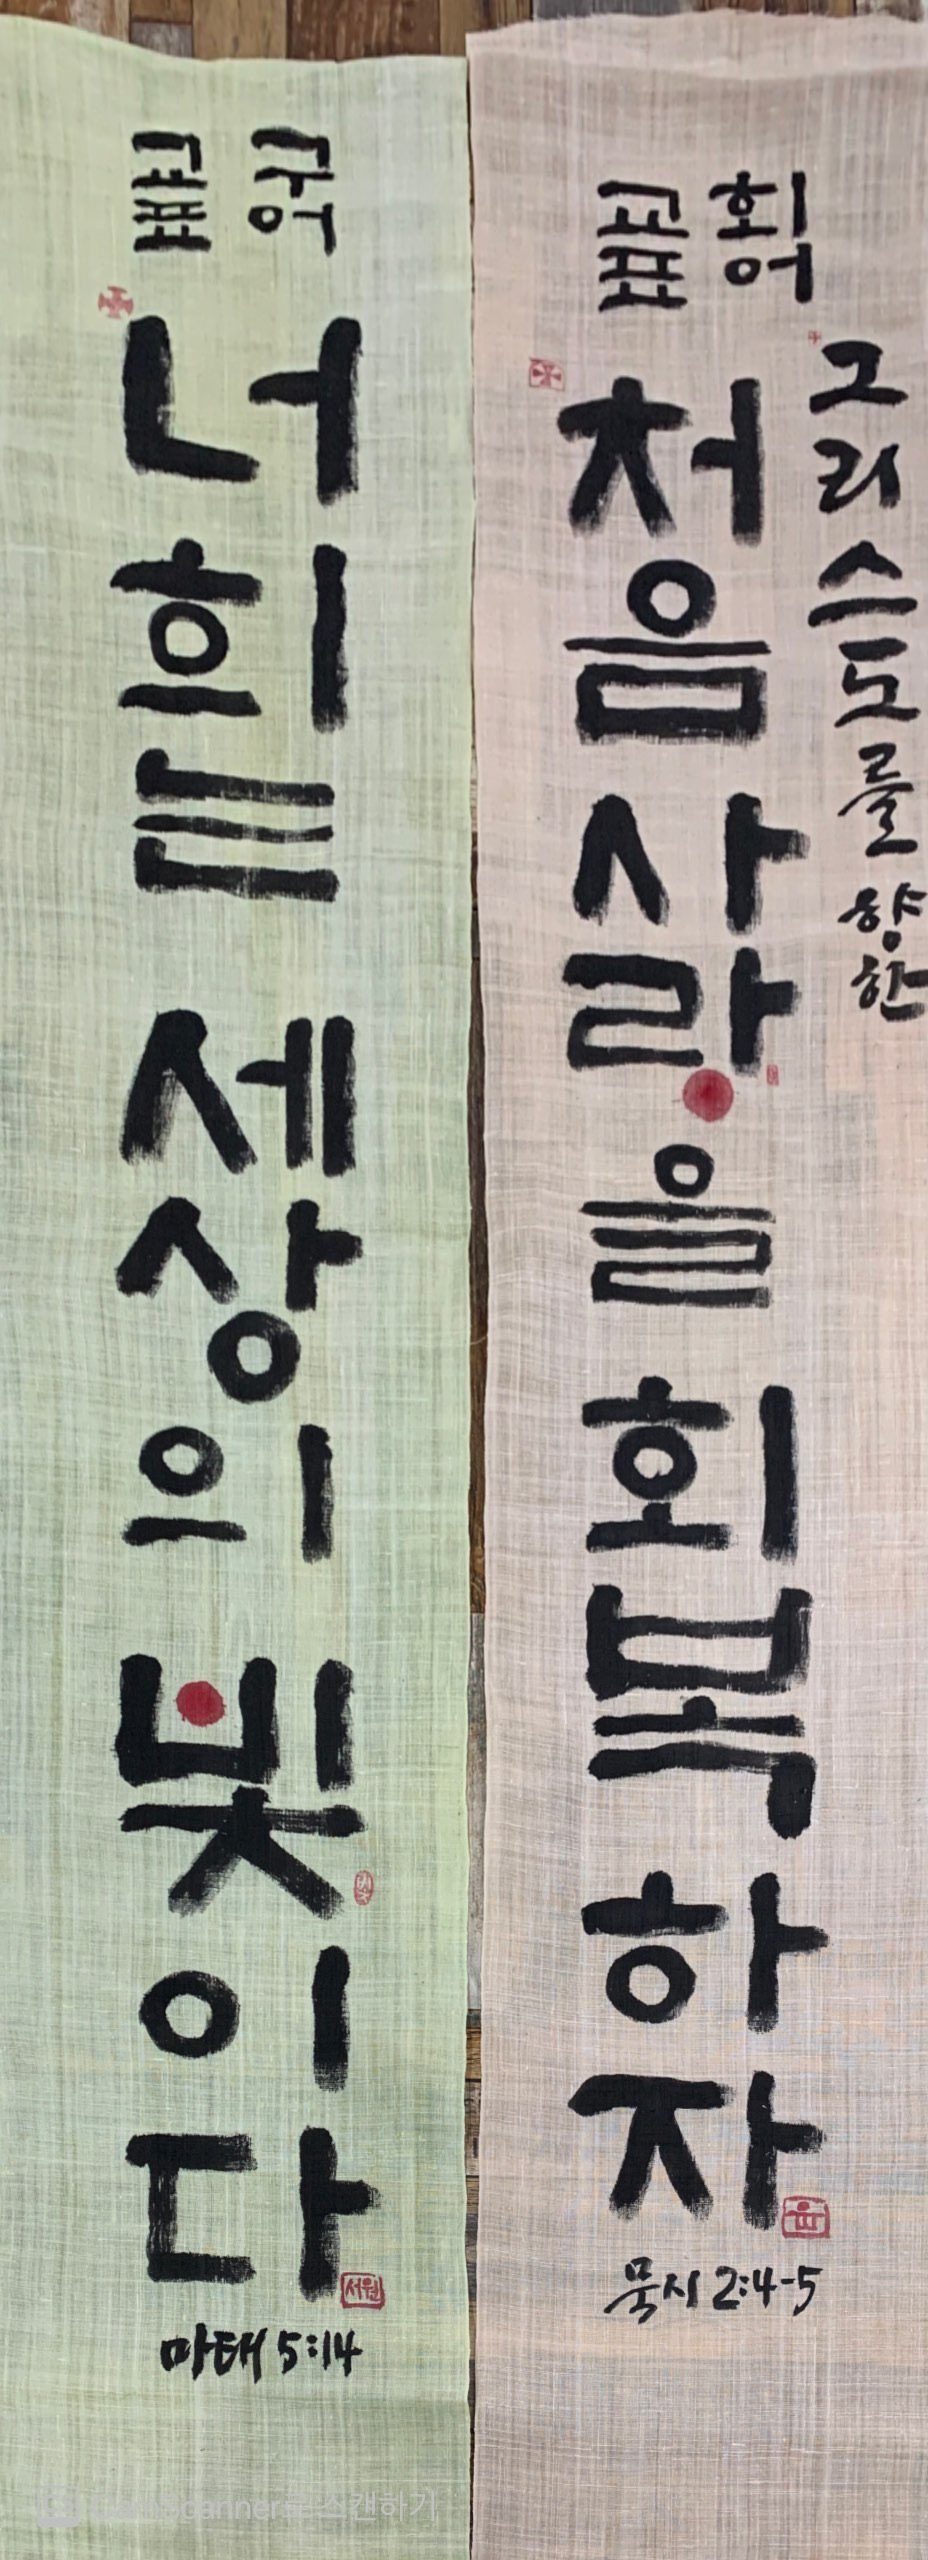 교구
표어
너희는 세상의 빛이다
서원
마태 5:14
교회
표어
그리스도를 향한
처음 사랑을 회복하자
묵시 2:4-5
CamScanner로 스캔하기